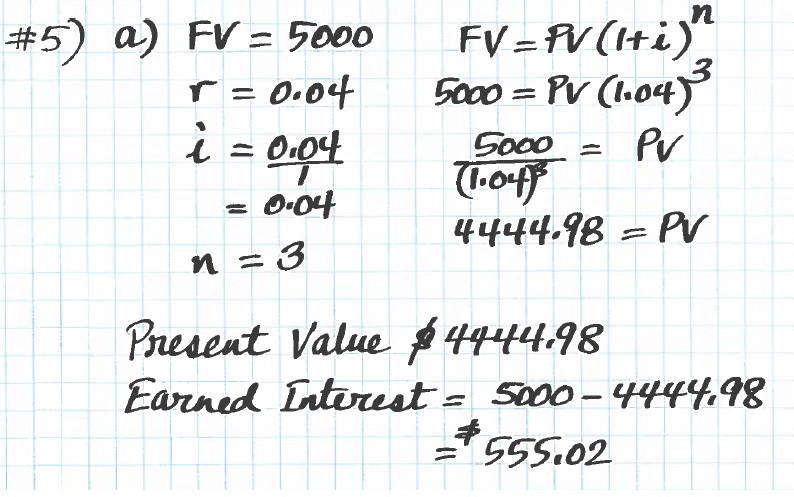 #5) a) FV = 5000
r = 0.04
i = 0.04/1
= 0.04
n = 3
FV = PV(1+i)^n
5000 = PV(1.04)^3
5000/(1.04)^3 = PV
4444.98 = PV
Present Value $4444.98
Earned Interest = 5000 - 4444.98
= $555.02